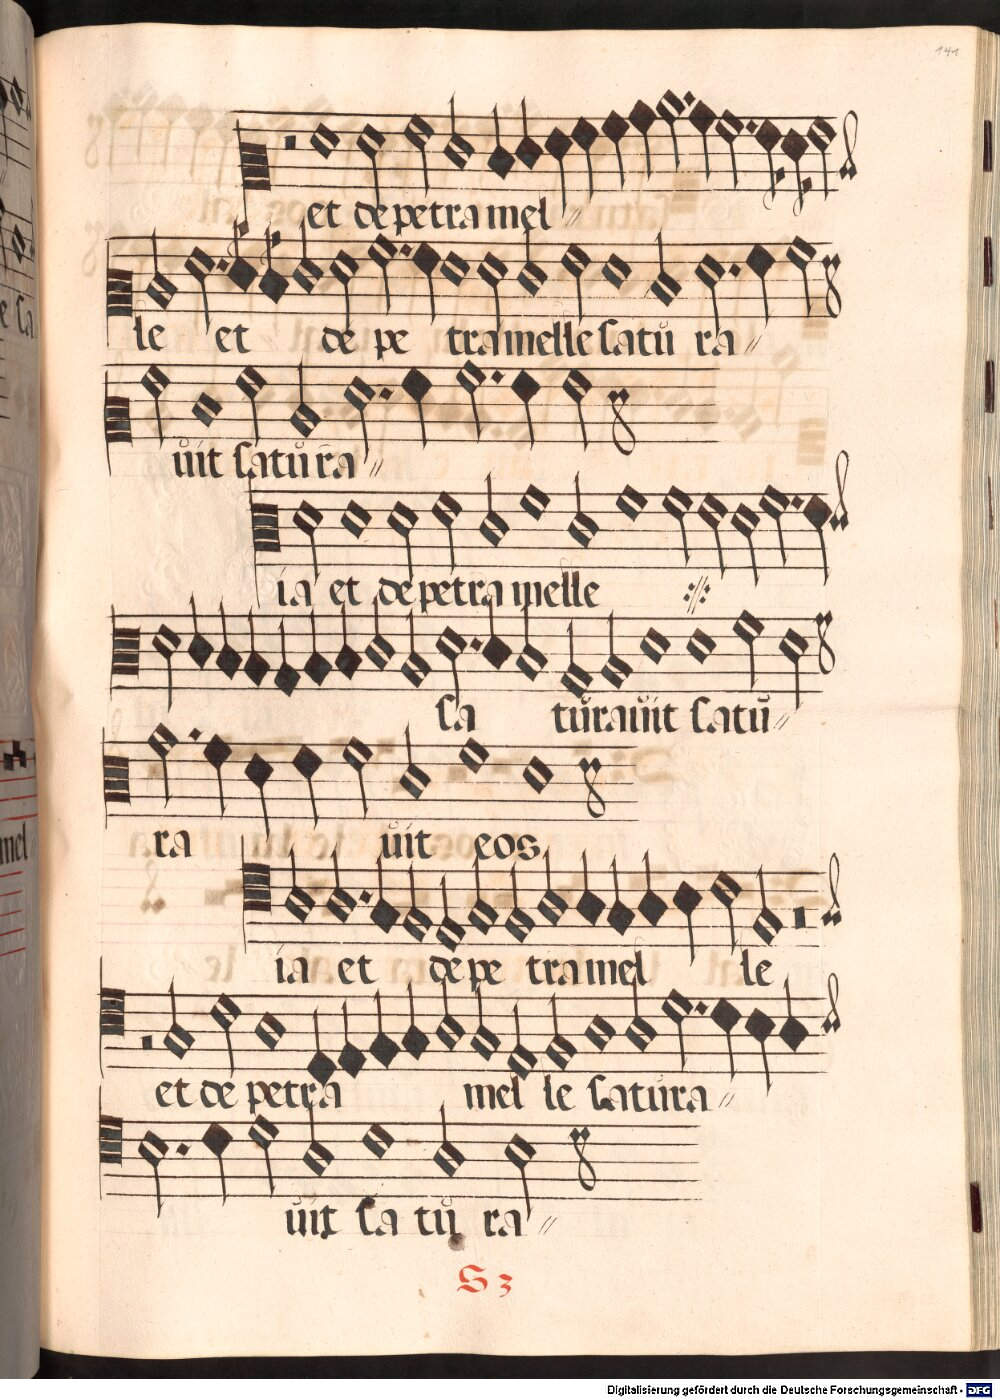 141
et de petra mel
le et de pe tra melle satu ra
uit satura
ia et de petra melle
sa turauit satu
ra uit eos
ia et de pe tra mel le
et de petra mel le satura
uit sa tu ra
S 3
Digitalisierung gefördert durch die Deutsche Forschungsgemeinschaft - DFG